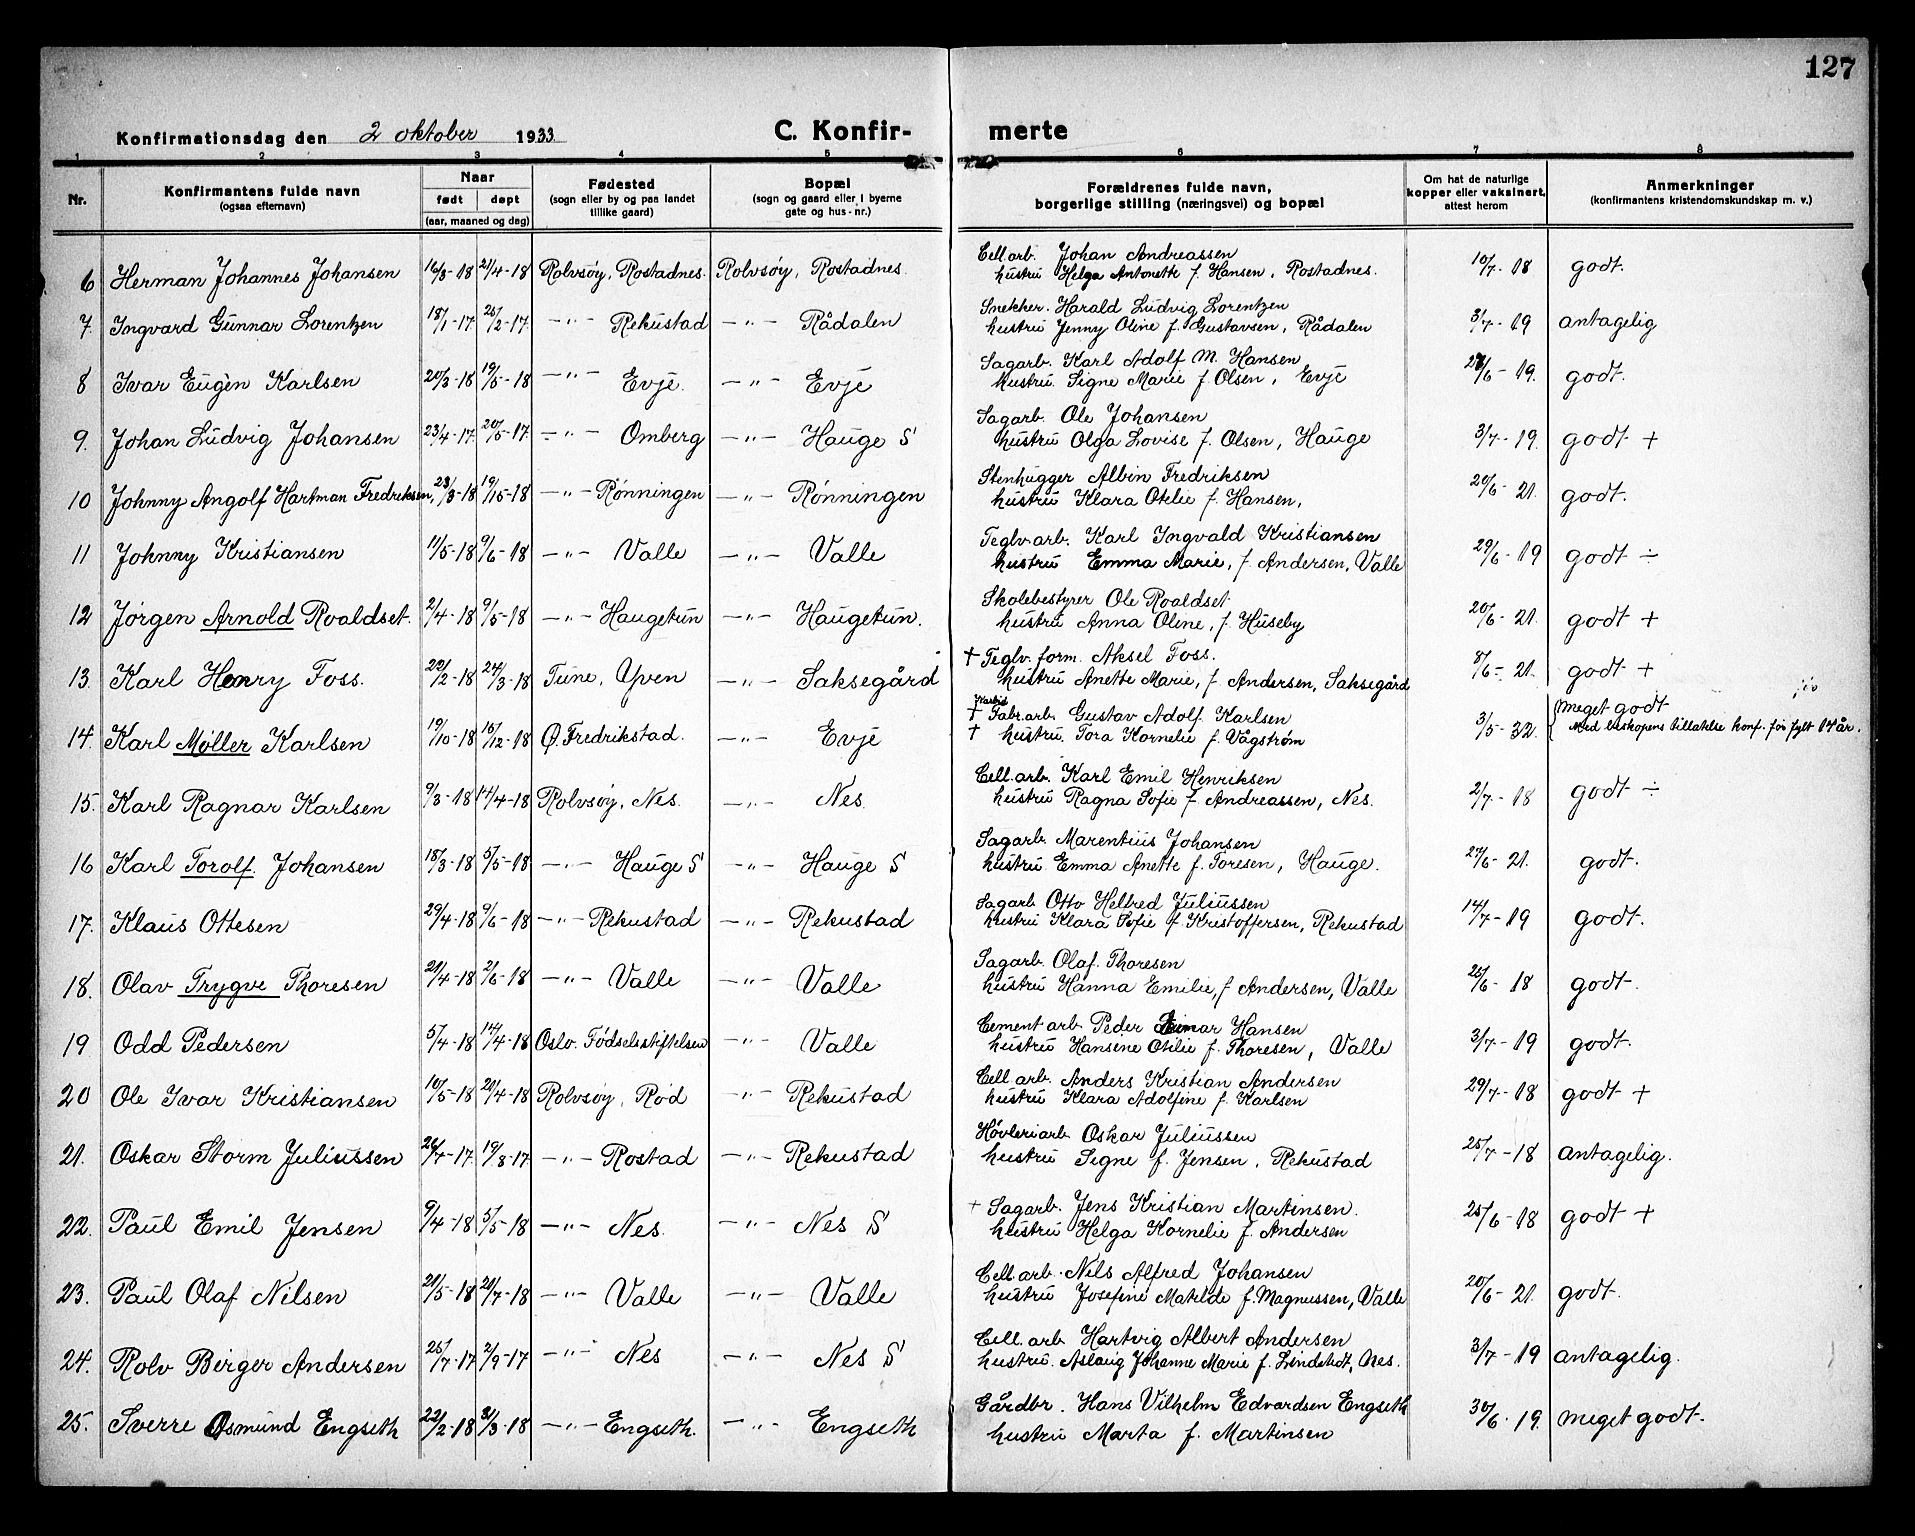 127
Konfirmationsdag den 2 oktober 1933
C. Konfir- merte
1 2 3 4 5 6 7 8
Nr.
Konfirmantens fulde navn
(ogsaa efternavn)
Naar
født døpt
(aar, maaned og dag)
Fødested
(sogn eller by og paa landet
tillike gaard)
Bopæl
(sogn og gaard eller i byerne
gate og hus-nr.)
Forældrenes fulde navn,
borgerlige stilling (næringsvei) og bopæl
Om hat de naturlige
kopper eller vaksinert,
attest herom
Anmerkninger
(konfirmantens kristendomskundskap m. v.)
6 Herman Johannes Johansen 16/3-18 21/4-18 Rolvsøy, Rostadnes. Rolvsøy, Rostadnes. Cell.arb. Johan Andreassen
hustru Helga Antonette f. Hansen, Rostadnes. 10/7-18 godt.
7. Ingvard Gunnar Lorentzen 18/1-17 25/2-17. -"- Rekustad -"- Rådalen Snekker. Harald Ludvig Lorentzen
hustru Jenny Oline f. Gustavsen, Rådalen 3/7-19 antagelig
8 Ivar Eugèn Karlsen 20/3-18 19/5-18 -"- Evje. -"- Evje Sagarb. Karl Adolf M. Hansen
hustru Signe Marie f. Olsen, Evje 27/6-19. godt.
9. Johan Ludvig Johansen 23/4-17. 20/5-17. -"- Omberg -"- Hauge S Sagarb. Ole Johansen
hustru Olga Lovise f. Olsen, Hauge 3/7-19. godt +
10 Johnny Angolf Hartman Fredriksen, 23/3-18 19/5-18 -"- Rønningen -"- Rønningen Stenhugger Albin Fredriksen
hustru Klara Otelie f. Hansen, 20/6-21. godt.
11 Johnny Kristiansen 11/5-18 9/6-18 -"- Valle -"- Valle Teglv.arb. Karl Ingvald Kristiansen
hustru Emma Marie, f. Andersen, Valle 29/6-19 godt ÷
12 Jørgen Arnold Roaldset. 2/4-18 9/5-18 -"- Haugetun -"- Haugetun. Skolebestyrer Ole Roaldset
hustru Anna Oline, f. Huseby 20/6-21. godt +
13. Karl Henry Foss. 22/2-18 24/3-18 Tune, Yven -"- Saksegård + Teglv. form. Aksel Foss.
hustru Anette Marie, f. Andersen, Saksegård 8/6-21. godt +
14. Karl Møller Karlsen 19/10-18 15/12-18 Ø. Fredrikstad. -"- Evje + Fabr.arb. Gustav Adolf Karlsen
+ hustru Tora Kornelie f. Vågstrøm 3/5-32. { meget godt
Med biskopens tillatelse konf. før fylt 14 år.
15. Karl Ragnar Karlsen 9/3-18 14/4-18 Rolvsøy, Nes. -"- Nes. Cell.arb. Karl Emil Henriksen
hustru Ragna Sofie f. Andreassen, Nes. 2/7-18 godt ÷
16 Karl Torolf. Johansen 18/3-18 5/5-18 -"- Hauge S -"- Hauge S Sagarb. Marentius Johansen
hustru Emma Anette f. Toresen, Hauge. 27/6-21. godt.
17. Klaus Ottesen 29/4-18 9/6-18 -"- Rekustad -"- Rekustad Sagarb. Otto Helfred Juliussen
hustru Klara Sofie f Kristoffersen, Rekustad 14/7-19 godt.
18. Olav Trygve Thoresen 21/4-18 2/6-18 -"- Valle -"- Valle Sagarb. Olaf. Thoresen
hustru Hanna Emilie, f Andersen, Valle 25/6-18 godt.
19 Odd Pedersen 5/4-18 14/4-18 Oslo. Fødselsstiftelsen -"- Valle Cement arb. Peder Hansen
hustru Hansine Otilie f. Thoresen, Valle 3/7-19 godt.
20 Ole Ivar Kristiansen 10/5-18 20/4-18 Rolvsøy, Rød -"- Rekustad Cell arb. Anders Kristian Andersen
hustru Klara Adolfine f. Karlsen 29/7-18 godt +
21. Oskar Storm Juliussen 26/7-17. 19/8-17 -"- Rostad -"- Rekustad Høvleriarb. Oskar Juliussen
hustru Signe f. Jensen, Rekustad 25/7-18 antagelig.
22. Paul Emil Jensen 9/4-18 5/5-18 -"- Nes. -"- Nes S + Sagarb. Jens Kristian Martinsen.
hustru Helga Kornelie f. Andersen 25/6-18 godt +
23. Paul Olaf Nilsen 21/5-18 21/7-18 -"- Valle -"- Valle Cell.arb. Nils Alfred Johansen
hustru Josefine Matilde f. Magnussen, Valle 20/6-21. godt.
24. Rolv Birger Andersen 25/7-17 2/9-17 -"- Nes -"- Nes S Cell. arb. Hartvig Albert Andersen
hustru. Aslaug Johanne Marie f. Lindstedt, Nes. 3/7-19 antagelig.
25. Sverre Osmund Engseth 22/2-18 31/3-18 -"- Engseth. -"- Engseth Gårdbr. Hans Vilhelm Edvardsen Engseth
hustru Marta f. Martinsen 30/6-19. meget godt.